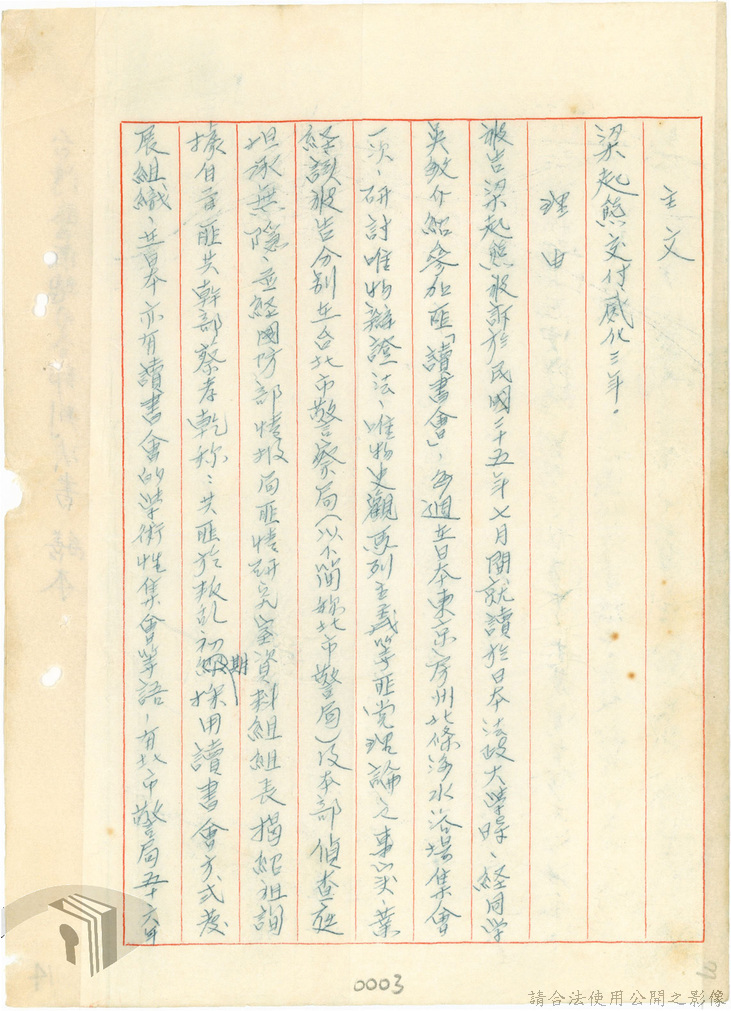 主文
梁起熊交付感化三年。
理由
被告梁起熊被訴於民國三十五年七月間就讀於日本法政大學時、經同學
吳敏介紹參加匪「讀書會」，每週在日本東京房州北條海水浴場集會
一次，研討唯物辯證法、唯物史觀馬列主義等匪党理論之事實，業
經該被告分別在台北市警察局（以下簡稱北市警局）及本部偵查庭
坦承無隱、並經國防部情报局匪情研究室資料組組長楊紹祖詢
據自首匪共幹部蔡孝乾称：共匪於叛乱初期採用讀書會方式發
展組織、在日本亦有讀書會的學術性集會等語，有北市警局五十六年
0003
請合法使用公開之影像